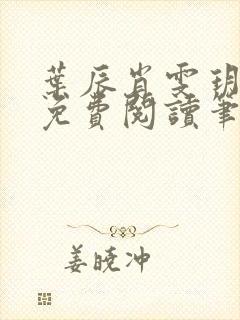 葉辰肖雯玥
免費閱讀筆
姜曉冲